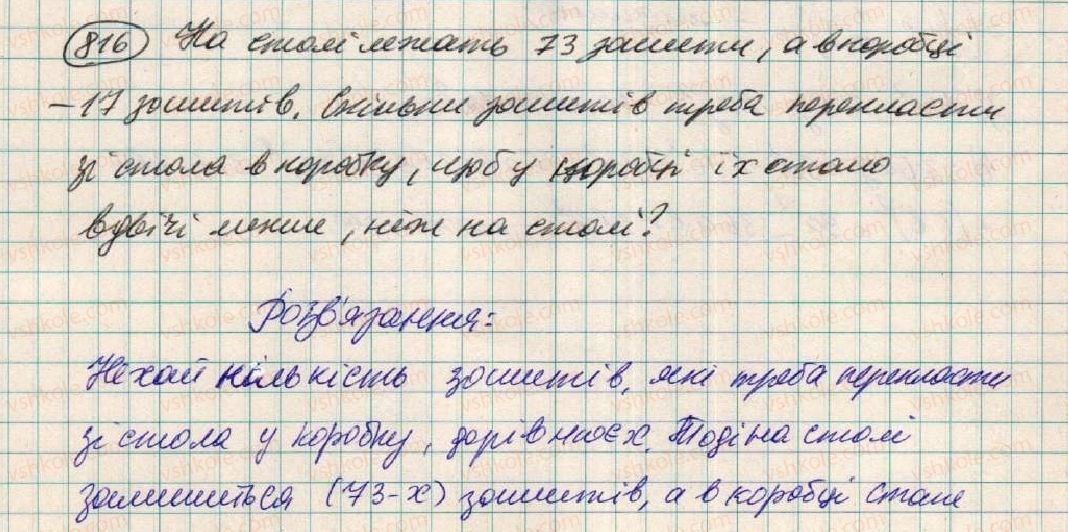 816 На столі лежать 73 зошити, а в коробці
– 17 зошитів. Скільки зошитів треба перекласти
зі стола в коробку, щоб у коробці їх стало
вдвічі менше, ніж на столі?
Розв'язання:
Нехай кількість зошитів, які треба перекласти
зі стола у коробку, дорівнює х. Тоді на столі
залишиться (73-х) зошитів, а в коробці стане